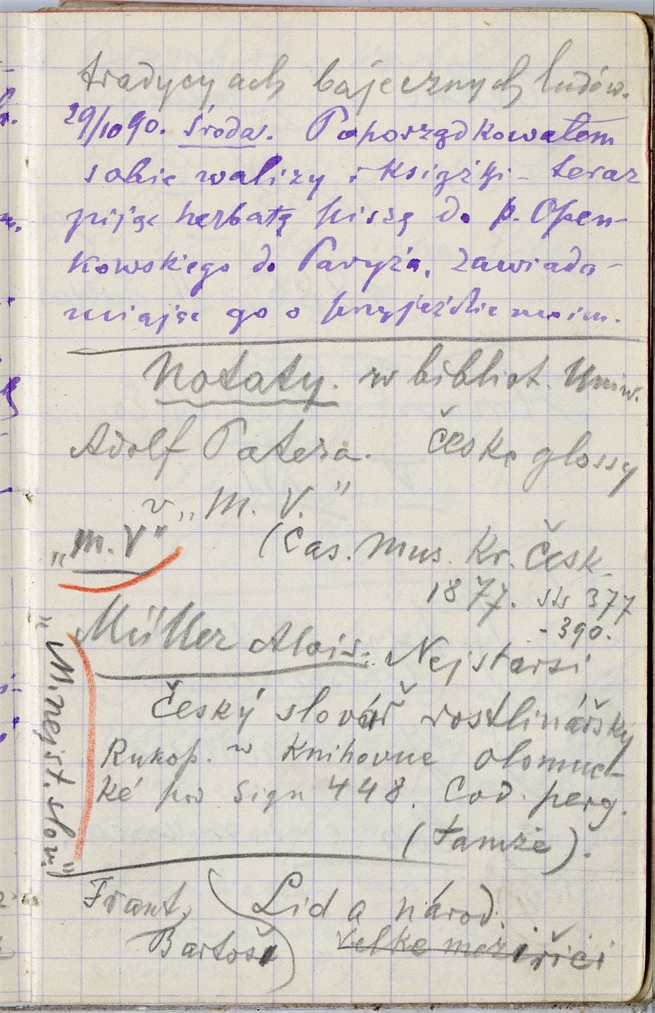 tradycyach bajecznych ludów.
29/10 90. Środa. Poporządkowałem
sobie walizy i książki - teraz
pijąc herbatę piszę do p. Open-
kowskiego do Paryża, zawiado-
miając go o przyjeździe moim.
Notaty. w bibliot. Uniw.
Adolf Patera. České glossy
v „M. V.”
„M. V”
(Čas. Mus. Kr. Česk.
1877. str 377
- 390.
Müller Alois: Nejstarsi
český slovář rostlinářsky
Rukop. w Knihovne olomuc-
ké pod sign 448. Cod. perg.
(tamże).
„M. nejst. slov.”
Frant. Lid a národ.
Bartoš Velke meziřiči